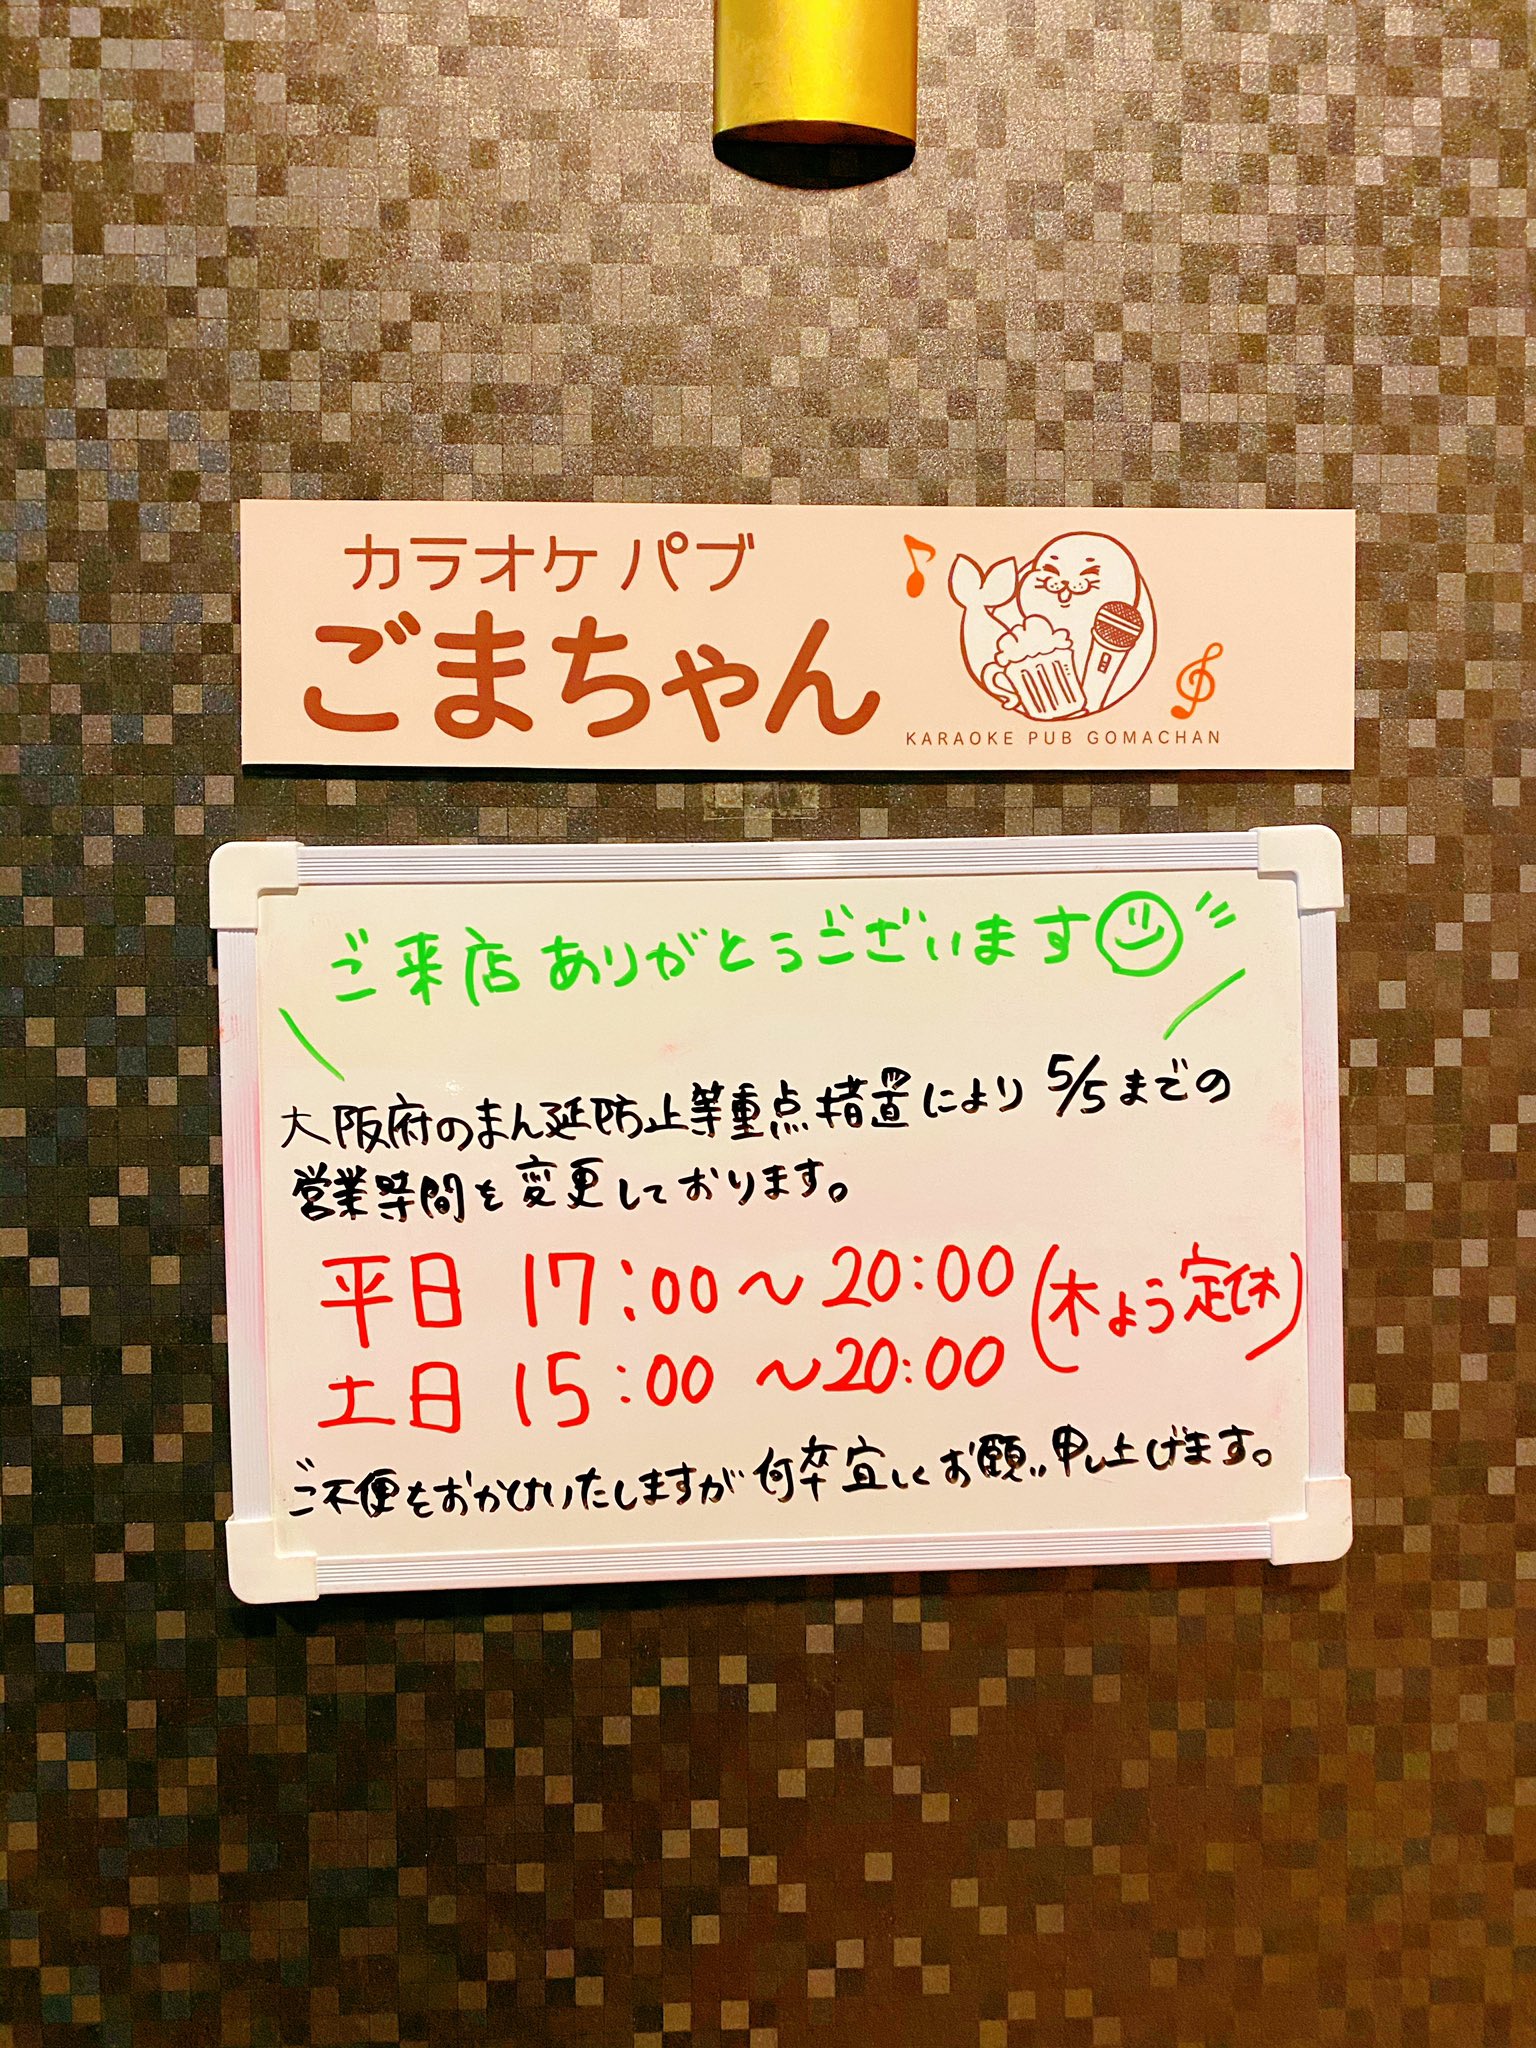 カラオケ パブ
ごまちゃん
KARAOKE PUB GOMACHAN
ご来店ありがとうございます
大阪府のまん延防止等重点措置により 5/5までの
営業時間を変更しております。
平日 17:00～20:00 (木よう定休)
土日 15:00～20:00
ご不便をおかけいたしますが何卒宜しくお願い申し上げます。